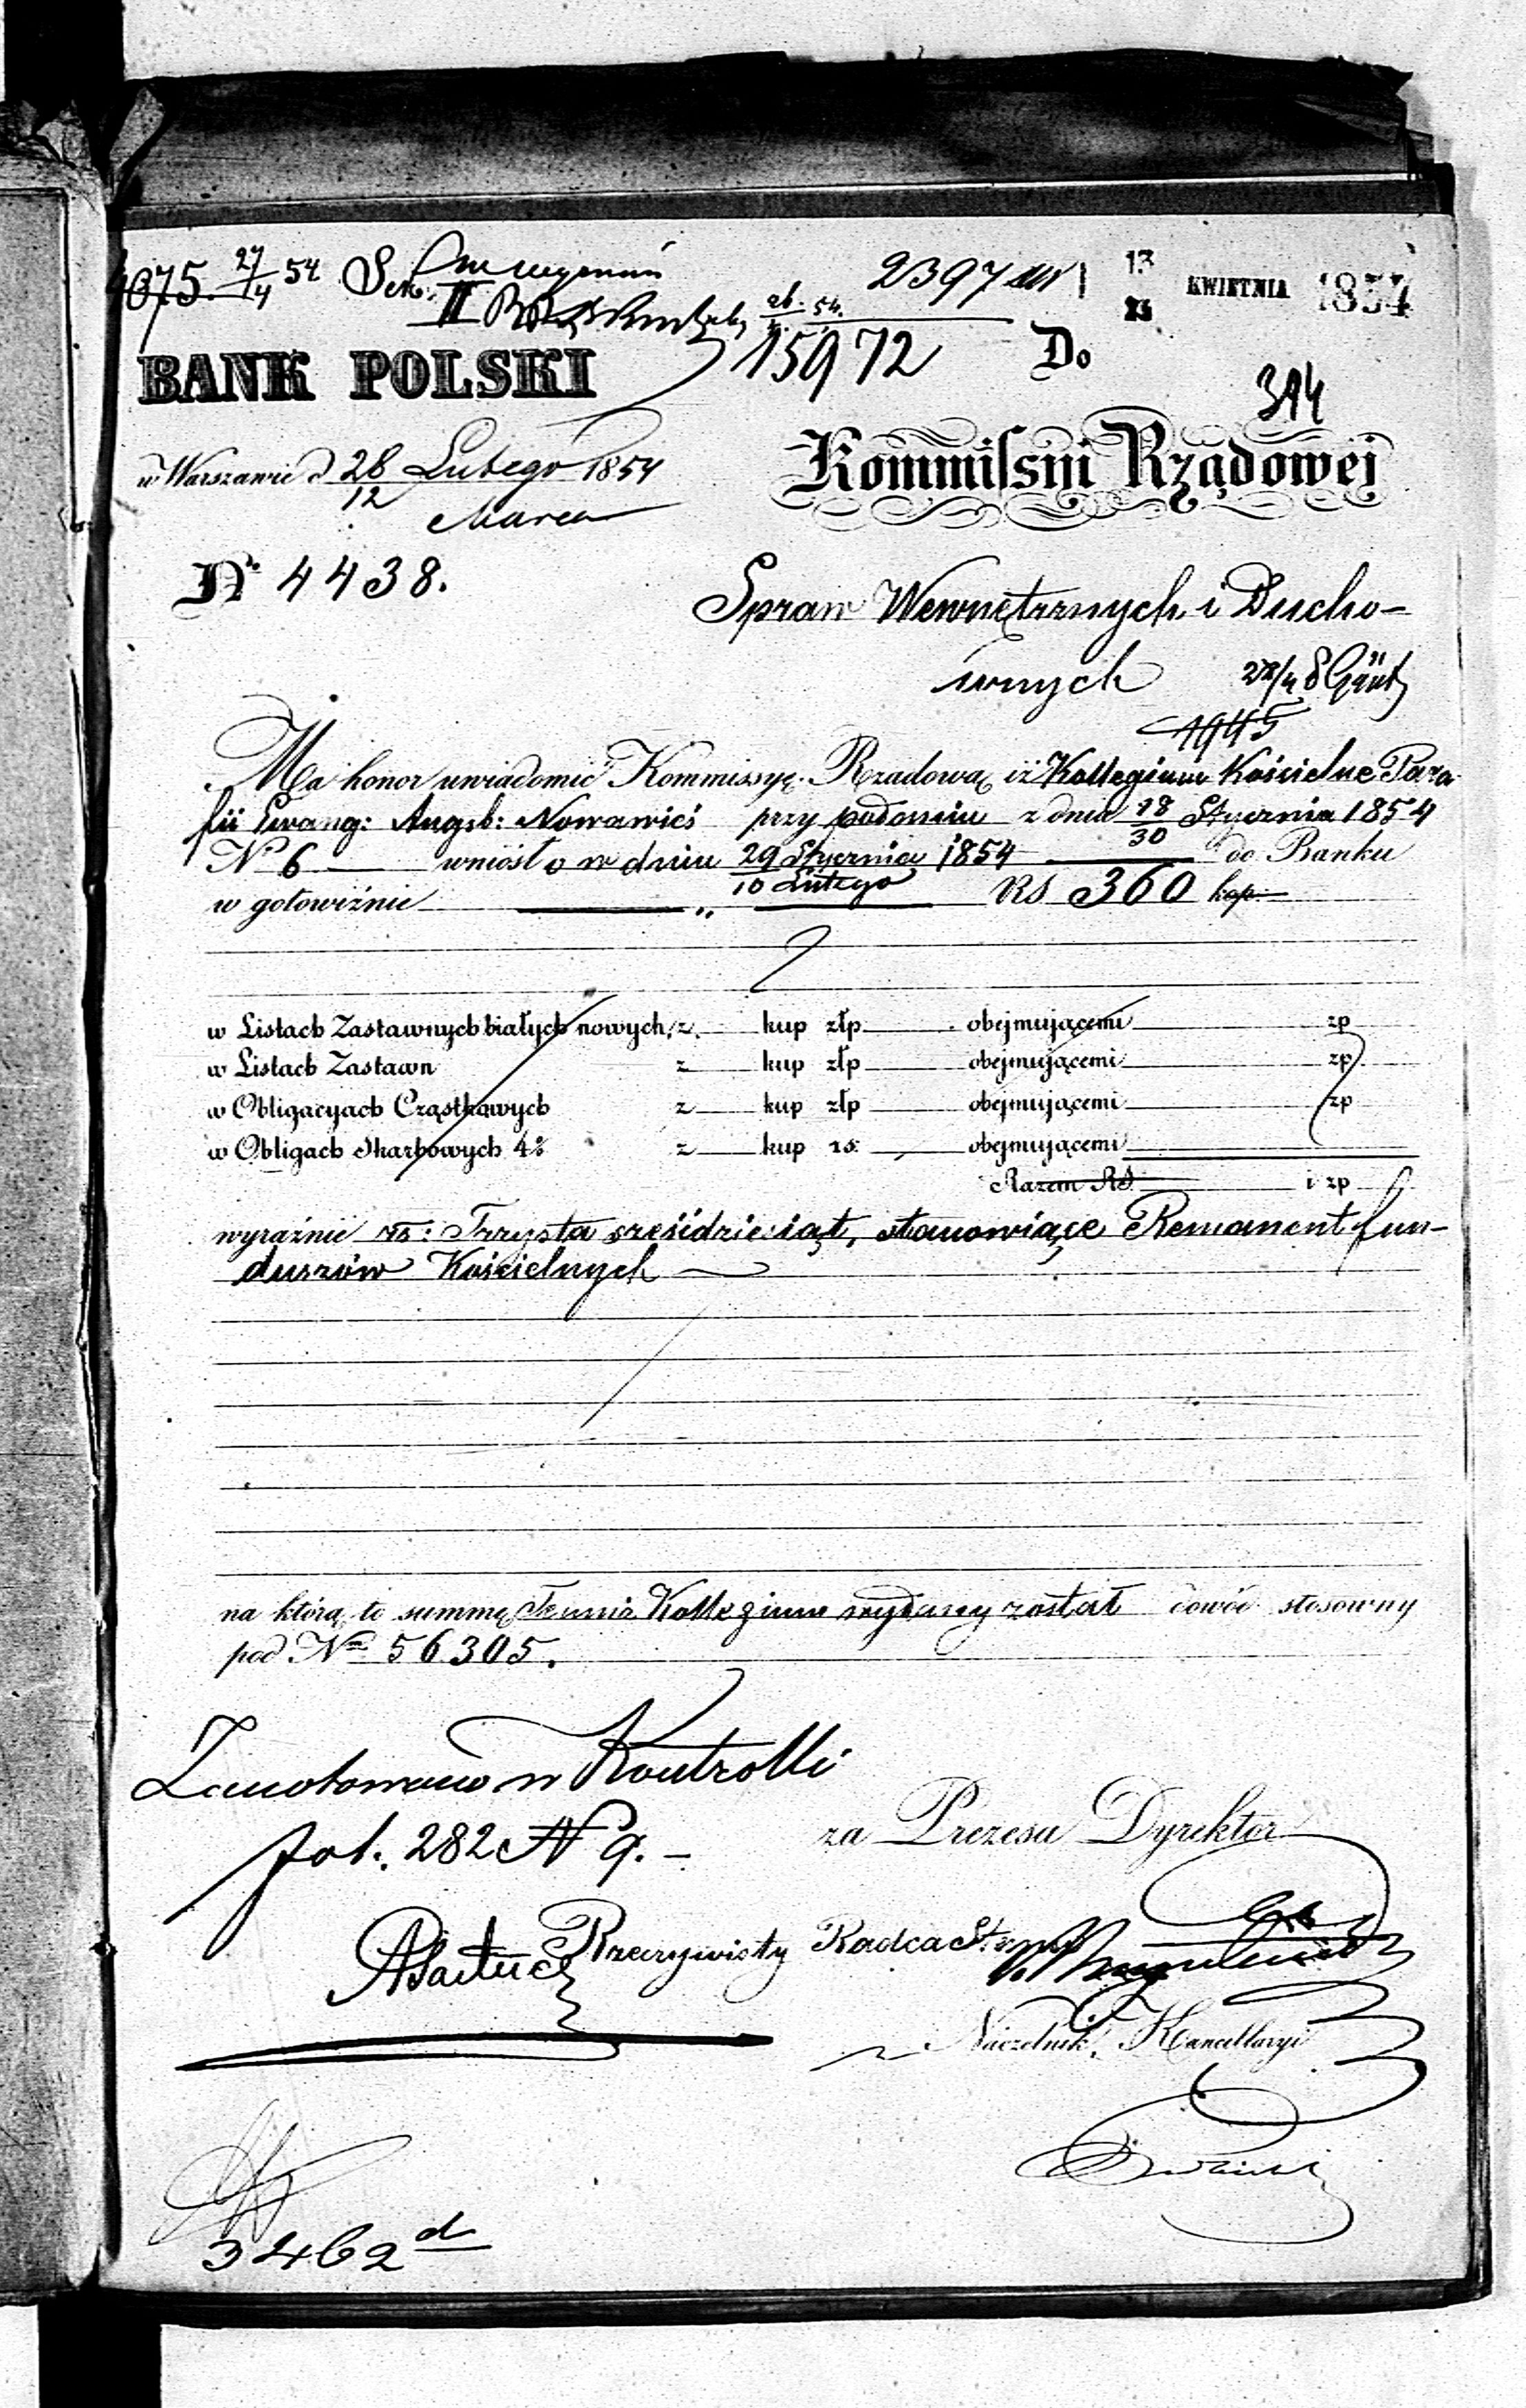 4075. 27/4 54 Sek:
II
26/4 54.
2397
13/25 KWIETNIA 1854
15972
Do
BANK POLSKI
314
w Warszawie d 28/12 Lutego 1854
Marca
Kommissyi Rządowej
No 4438.
Spraw Wewnętrznych i Ducho-
wnych
1945
Ma honor uwiadomić Kommissyę Rządową iż Kollegium Kościelne Para
fii Ewang: Augsb: Nowawieś przy podaniu z dnia 18/30 Stycznia 1854
No 6 wniosło w dniu 29 Stycznia/10 Lutego 1854 do Banku
w gotowiźnie „ RS 360 kop
w Listach Zastawnych białych nowych, z kup złp obejmującemi zp
w Listach Zastawn z kup złp obejmującemi zp
w Obligacyach Cząstkowych z kup złp obejmującemi zp
w Obligach Skarbowych 4% z kup rs. obejmującemi
Razem RS i zp
wyraźnie rs: Trzysta sześćdziesiąt, stanowiące Remanent fun-
duszów Kościelnych
na którą to summę Temuż Kollegium wydany został dowód stosowny
pod No 56305.
Zanotowano w Kontrolli
fol. 282 N 9.
za Prezesa Dyrektor
Rzeczywisty Radca St:
Naczelnik Kancellaryi
3462 d